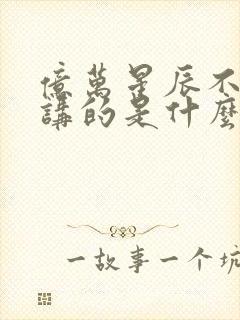 億萬星辰不
講的是什麼
一故事一个坑